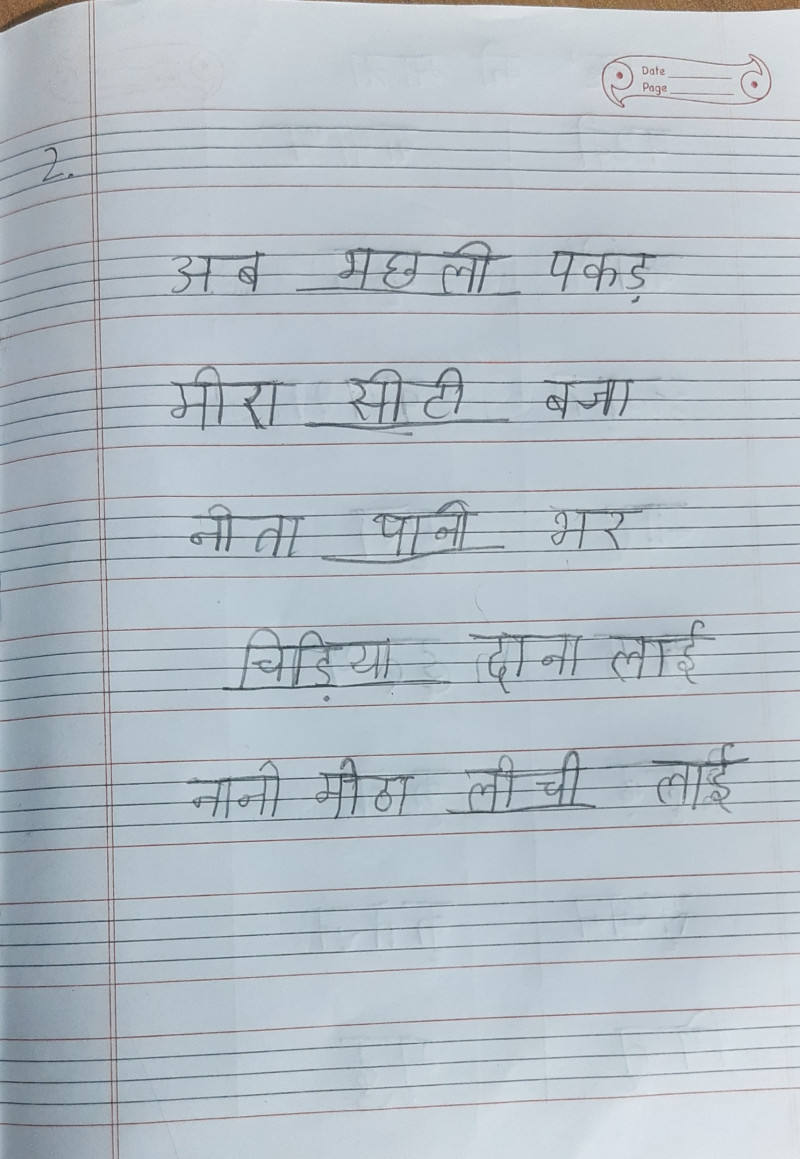 Date
Page
2.
अब मछली पकड़
मीरा सीटी बजा
नीता पानी भर
चिड़िया दाना लाई
नानी मीठा लीची लाई